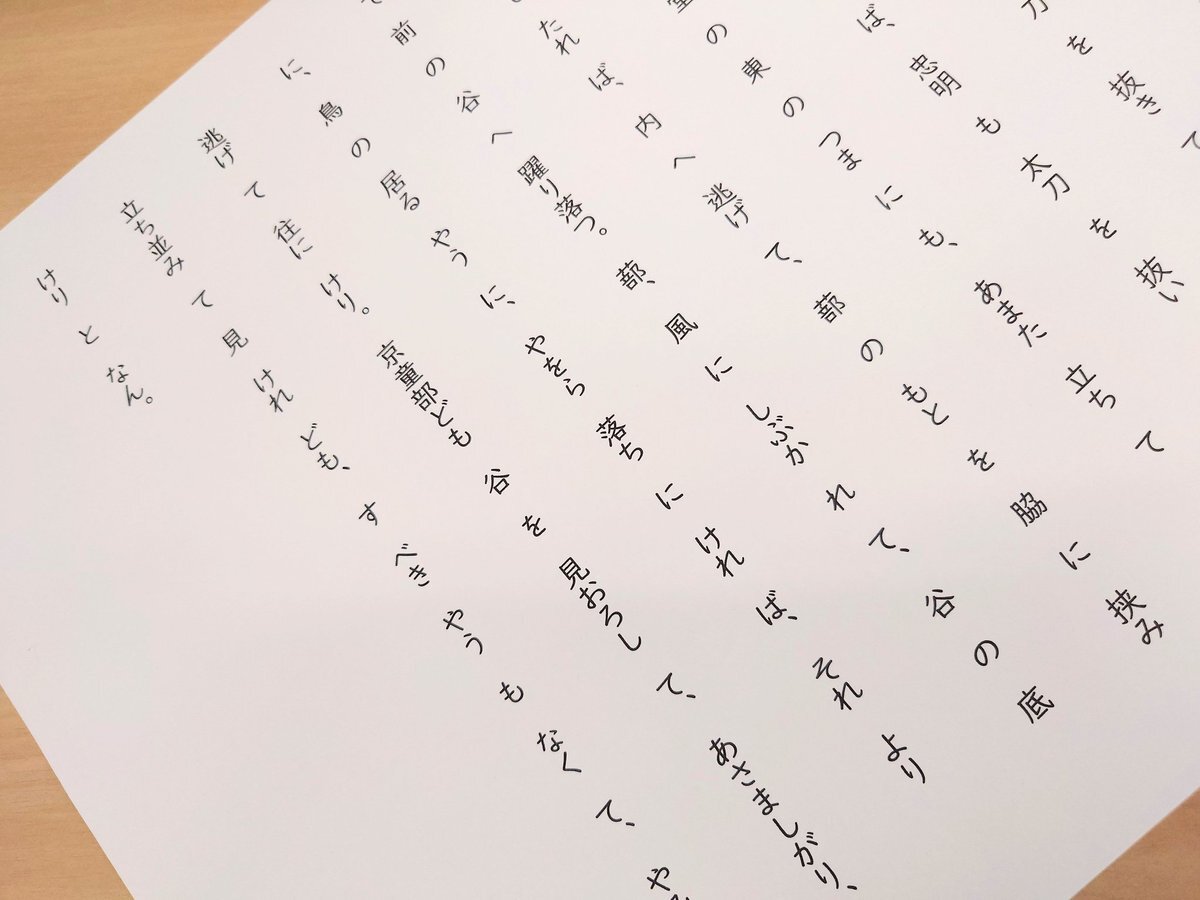 を抜き
ば、忠明も太刀を抜い
の東のつまにも、あまた立ちて
たれば、内へ逃げて、蔀のもとを脇に挟み
て前の谷へ躍り落つ。蔀、風にしぶかれて、谷の底
に、鳥の居るやうに、やをら落ちにければ、それより
逃げて往にけり。京童部ども谷を見おろして、あさましがり、
立ち並みて見けれども、すべきやうもなくて、や
けりとなん。